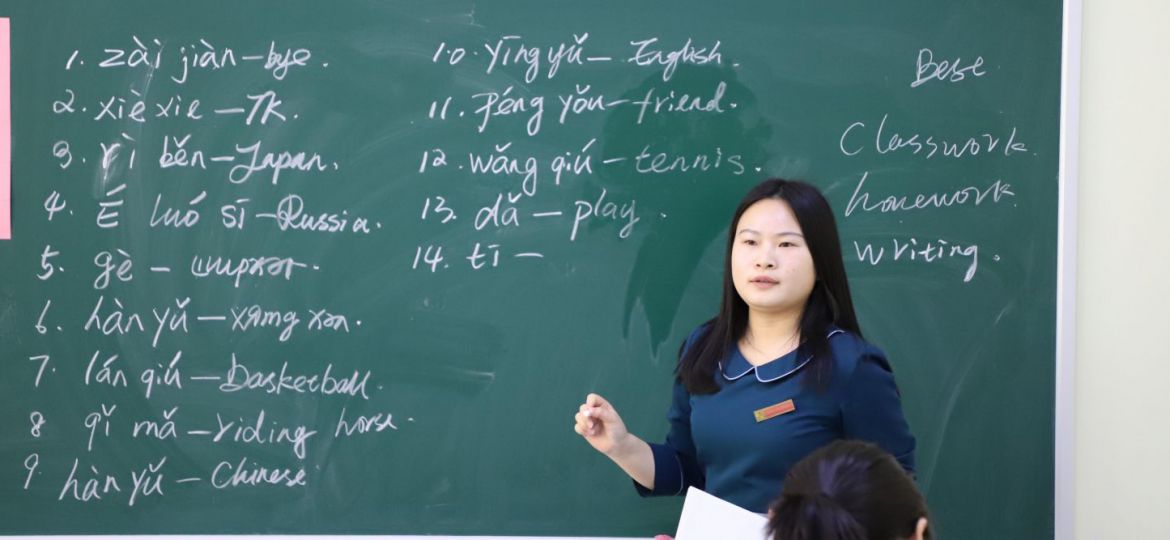 1. zài jiàn – bye.
2. xiè xie – Tk.
3. rì běn – Japan.
4. É luó sī – Russia.
5. gè – ширхэг.
6. hàn yǔ –
7. lán qiú – Basketball.
8 qǐ mǎ – riding horse.
9. hàn yǔ – Chinese
10. yīng yǔ – English.
11. Péng yǒu – friend.
12. wǎng qiú – tennis.
13. dǎ – play.
14. tī –
Classwork.
homework.
writing.